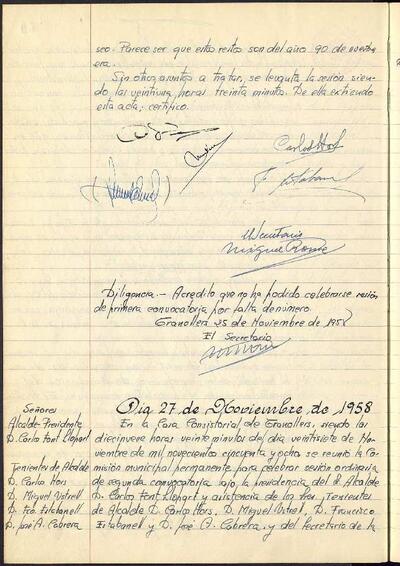 seo. Parece ser que estos restos son del año 90 de nuestra
era.
Sin otros asuntos a tratar, se levanta la sesión sien-
do las veintiuna horas treinta minutos. De ella extiendo
esta acta, certifico.
Carlos Hors
El Secretario
Miguel
Diligencia.- Acredito que no ha podido celebrarse sesión
de primera convocatoria por falta de número.
Granollers 25 de Noviembre de 1958
El Secretario
Señores
Alcalde Presidente
D. Carlos Font Llopart
Tenientes de Alcalde
D. Carlos Hors
D. Miguel Votrell
D. Fco. Estabanell
D. José A. Cabrera
Dia 27 de Noviembre de 1958
En la Casa Consistorial de Granollers, siendo las
diecinueve horas veinte minutos del día veintisiete de No-
viembre de mil novecientos cincuenta y ocho se reunió la Co-
misión municipal permanente para celebrar sesión ordinaria
de segunda convocatoria bajo la presidencia del Sr. Alcalde
D. Carlos Font Llopart y asistencia de los Sres. Tenientes
de Alcalde D. Carlos Hors, D. Miguel Votrell, D. Francisco
Estabanell y D. José A. Cabrera, y del Secretario de la